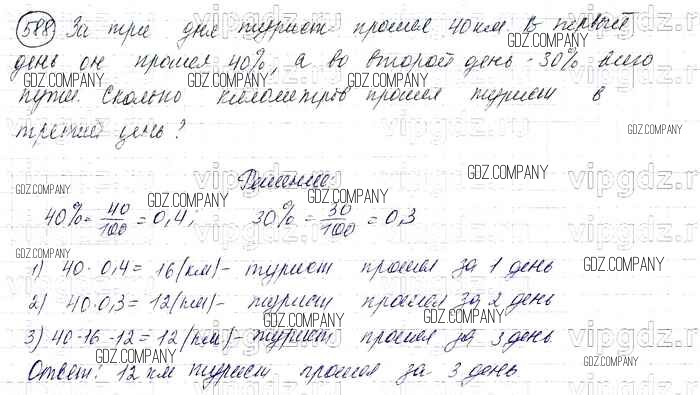 588 За три дня турист прошел 40 км. В первый
день он прошел 40%, а во второй день - 30% всего
пути. Сколько километров прошел турист в
третий день?
Решение:
40% = 40/100 = 0,4; 30% = 30/100 = 0,3
1) 40 · 0,4 = 16 (км) - турист прошел за 1 день
2) 40 · 0,3 = 12 (км) - турист прошел за 2 день
3) 40 - 16 - 12 = 12 (км) - турист прошел за 3 день.
Ответ: 12 км турист прошел за 3 день
GDZ.COMPANY
vipgdz.ru